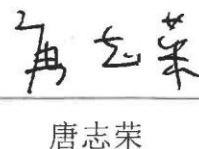 唐志荣
唐志荣